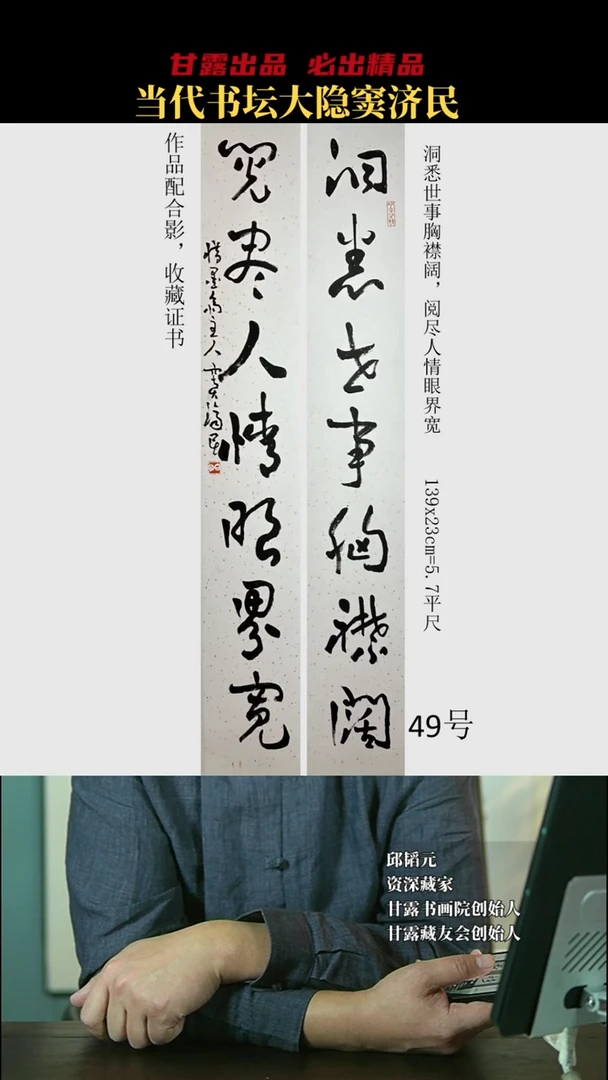 甘露出品 必出精品
当代书坛大隐窦济民
洞悉世事胸襟阔，阅尽人情眼界宽
139x23cm=5.7平尺
洞悉世事胸襟阔
阅尽人情眼界宽
惜墨斋主人窦济民
作品配合影，收藏证书
49号
邱韬元
资深藏家
甘露书画院创始人
甘露藏友会创始人